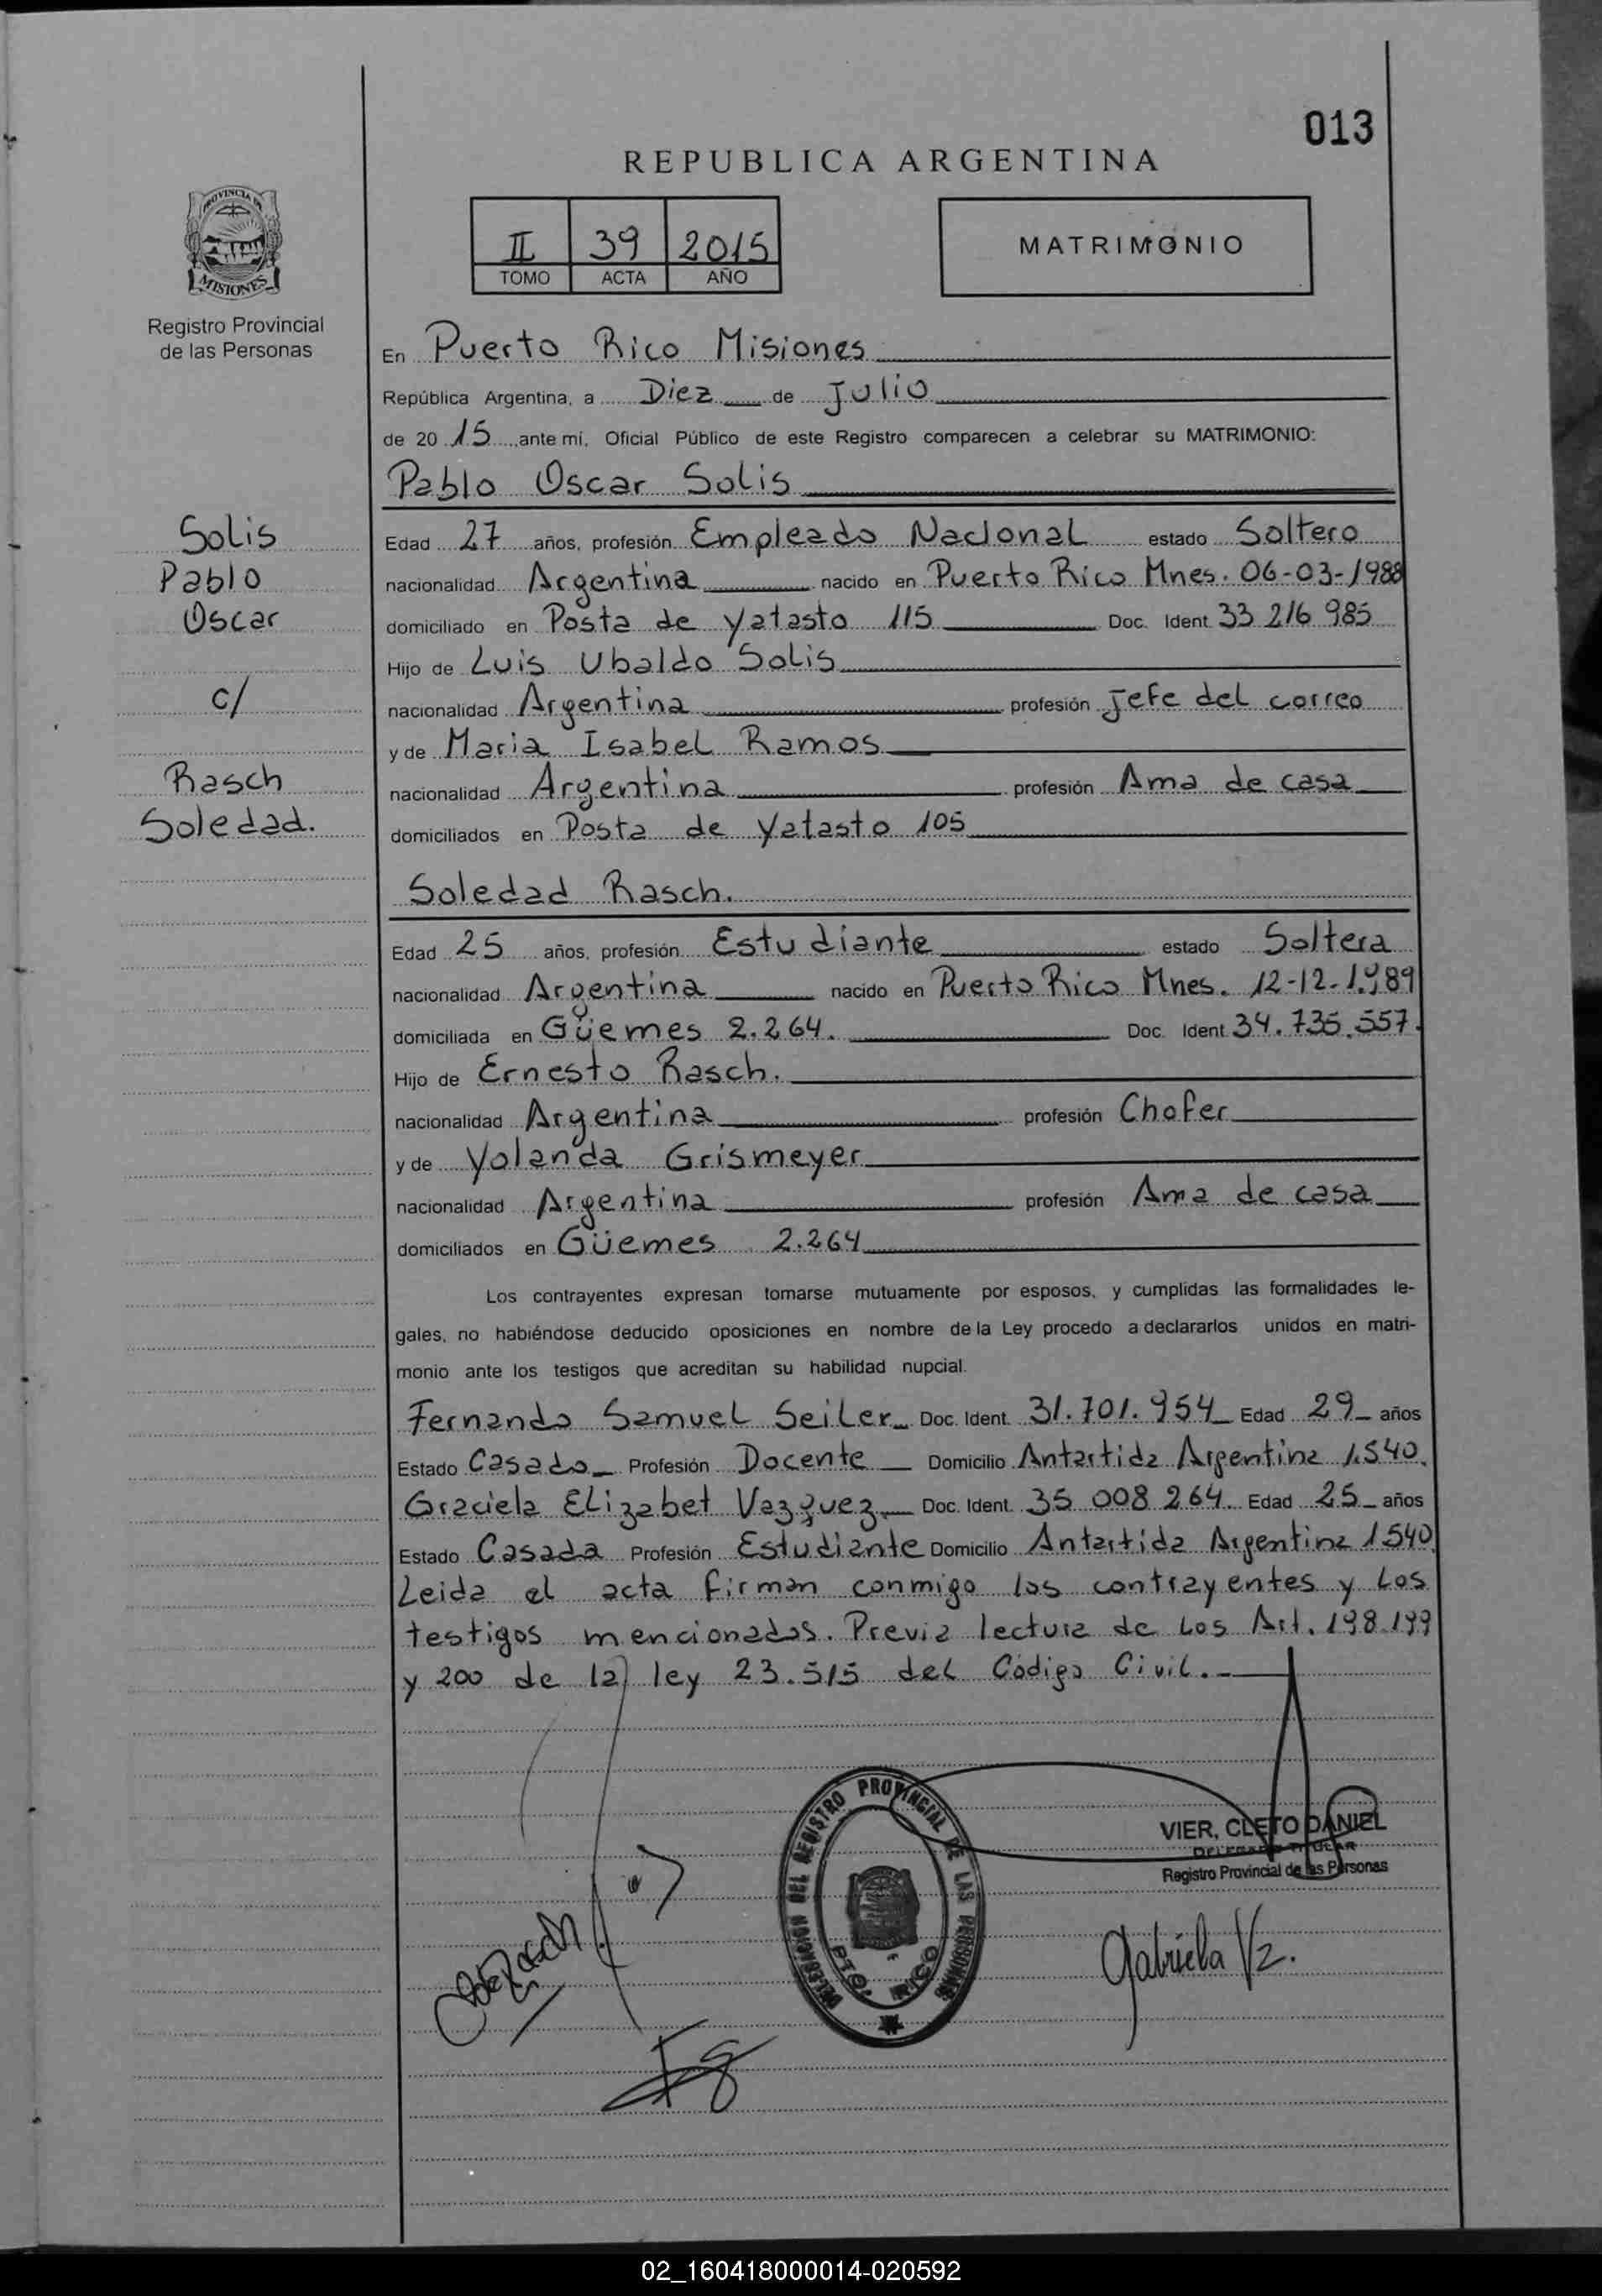 013
REPUBLICA ARGENTINA
PROVINCIA DE
MISIONES
Registro Provincial
de las Personas
II 39 2015
TOMO ACTA AÑO
MATRIMONIO
En Puerto Rico Misiones
República Argentina, a Diez de Julio
de 20 15 ante mí, Oficial Público de este Registro comparecen a celebrar su MATRIMONIO:
Pablo Oscar Solis
Solis
Pablo
Oscar
c/
Rasch
Soledad.
Edad 27 años, profesión Empleado Nacional estado Soltero
nacionalidad Argentina nacido en Puerto Rico Mnes. 06-03-1988
domiciliado en Posta de Yatasto 115 Doc. Ident. 33 216 985
Hijo de Luis Ubaldo Solis
nacionalidad Argentina profesión Jefe del correo
y de Maria Isabel Ramos
nacionalidad Argentina profesión Ama de casa
domiciliados en Posta de Yatasto 105
Soledad Rasch.
Edad 25 años, profesión Estudiante estado Soltera
nacionalidad Argentina nacido en Puerto Rico Mnes. 12-12-1.989
domiciliada en Güemes 2.264. Doc. Ident. 34.735.557.
Hijo de Ernesto Rasch.
nacionalidad Argentina profesión Chofer
y de Yolanda Grismeyer
nacionalidad Argentina profesión Ama de casa
domiciliados en Güemes 2.264
Los contrayentes expresan tomarse mutuamente por esposos, y cumplidas las formalidades le-
gales, no habiéndose deducido oposiciones en nombre de la Ley procedo a declararlos unidos en matri-
monio ante los testigos que acreditan su habilidad nupcial.
Fernando Samuel Seiler Doc. Ident. 31.701.954 Edad 29 años
Estado Casado Profesión Docente Domicilio Antartida Argentina 1.540.
Graciela Elizabet Vazquez Doc. Ident. 35 008 264. Edad 25 años
Estado Casada Profesión Estudiante Domicilio Antartida Argentina 1540.
Leida el acta firman conmigo los contrayentes y los
testigos mencionados. Previa lectura de los Art. 198.199
y 200 de la ley 23.515 del Código Civil.
DELEGACION DEL REGISTRO PROVINCIAL DE LAS PERSONAS
PTO. RICO
VIER, CLETO DANIEL
DELEGADO TITULAR
Registro Provincial de las Personas
Gabriela Vz.
02_160418000014-020592